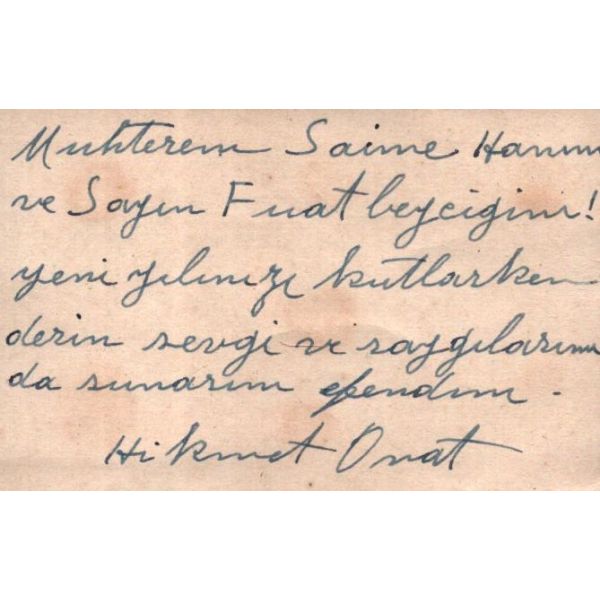 Muhterem Saime Hanım
ve Sayın Fuat beyciğim!
yeni yılınızı kutlarken
derin sevgi ve saygılarımı
da sunarım efendim.
Hikmet Onat